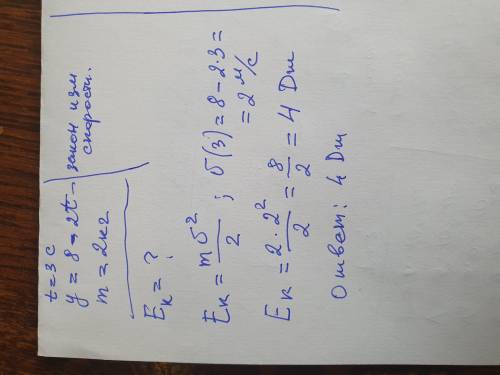 t = 3 с
y = 8 - 2t - закон изм скорости.
m = 2 кг
Eк = ?
Eк = mv²/2 ; v(3) = 8 - 2·3 =
= 2 м/с
Eк = 2·2²/2 = 8/2 = 4 Дж
Ответ: 4 Дж